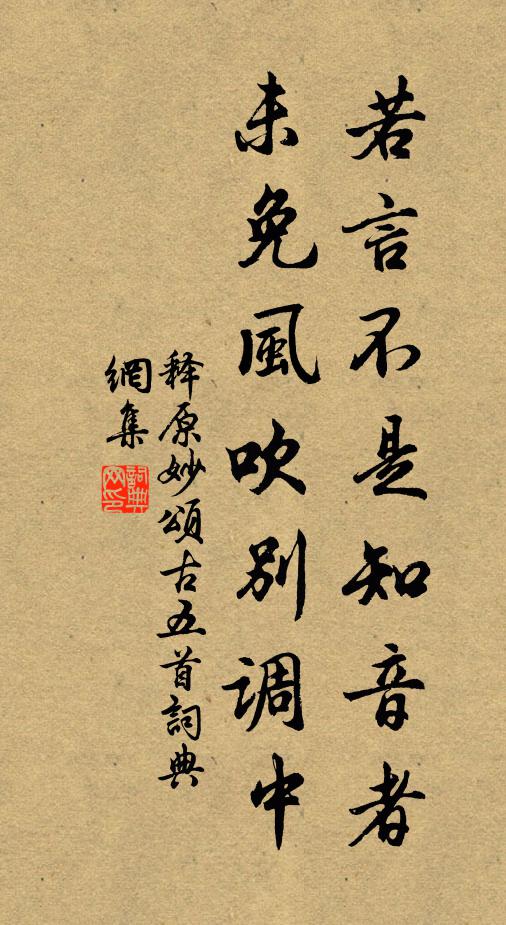 若言不是知音者
未免風吹别調中
释原妙頌古五首詞典
網集
詞典
网印